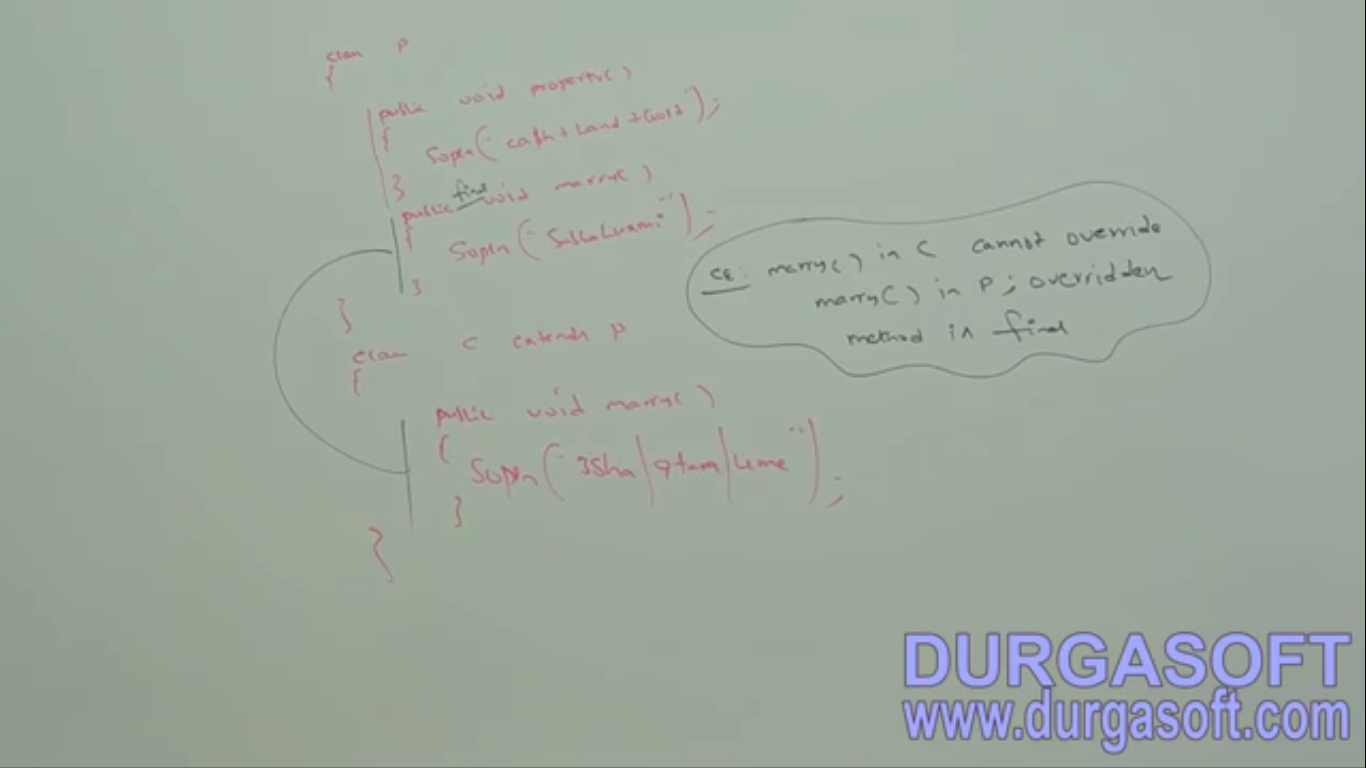 class P
{
public void property()
{
Sopln("cash+Land+Gold");
}
public final void marry()
{
Sopln("SubbaLaxmi");
}
}
class C extends P
{
public void marry()
{
Sopln("3Sha|9tara|4me");
}
}
CE: marry() in C cannot override
marry() in P; overridden
method is final
DURGASOFT
www.durgasoft.com